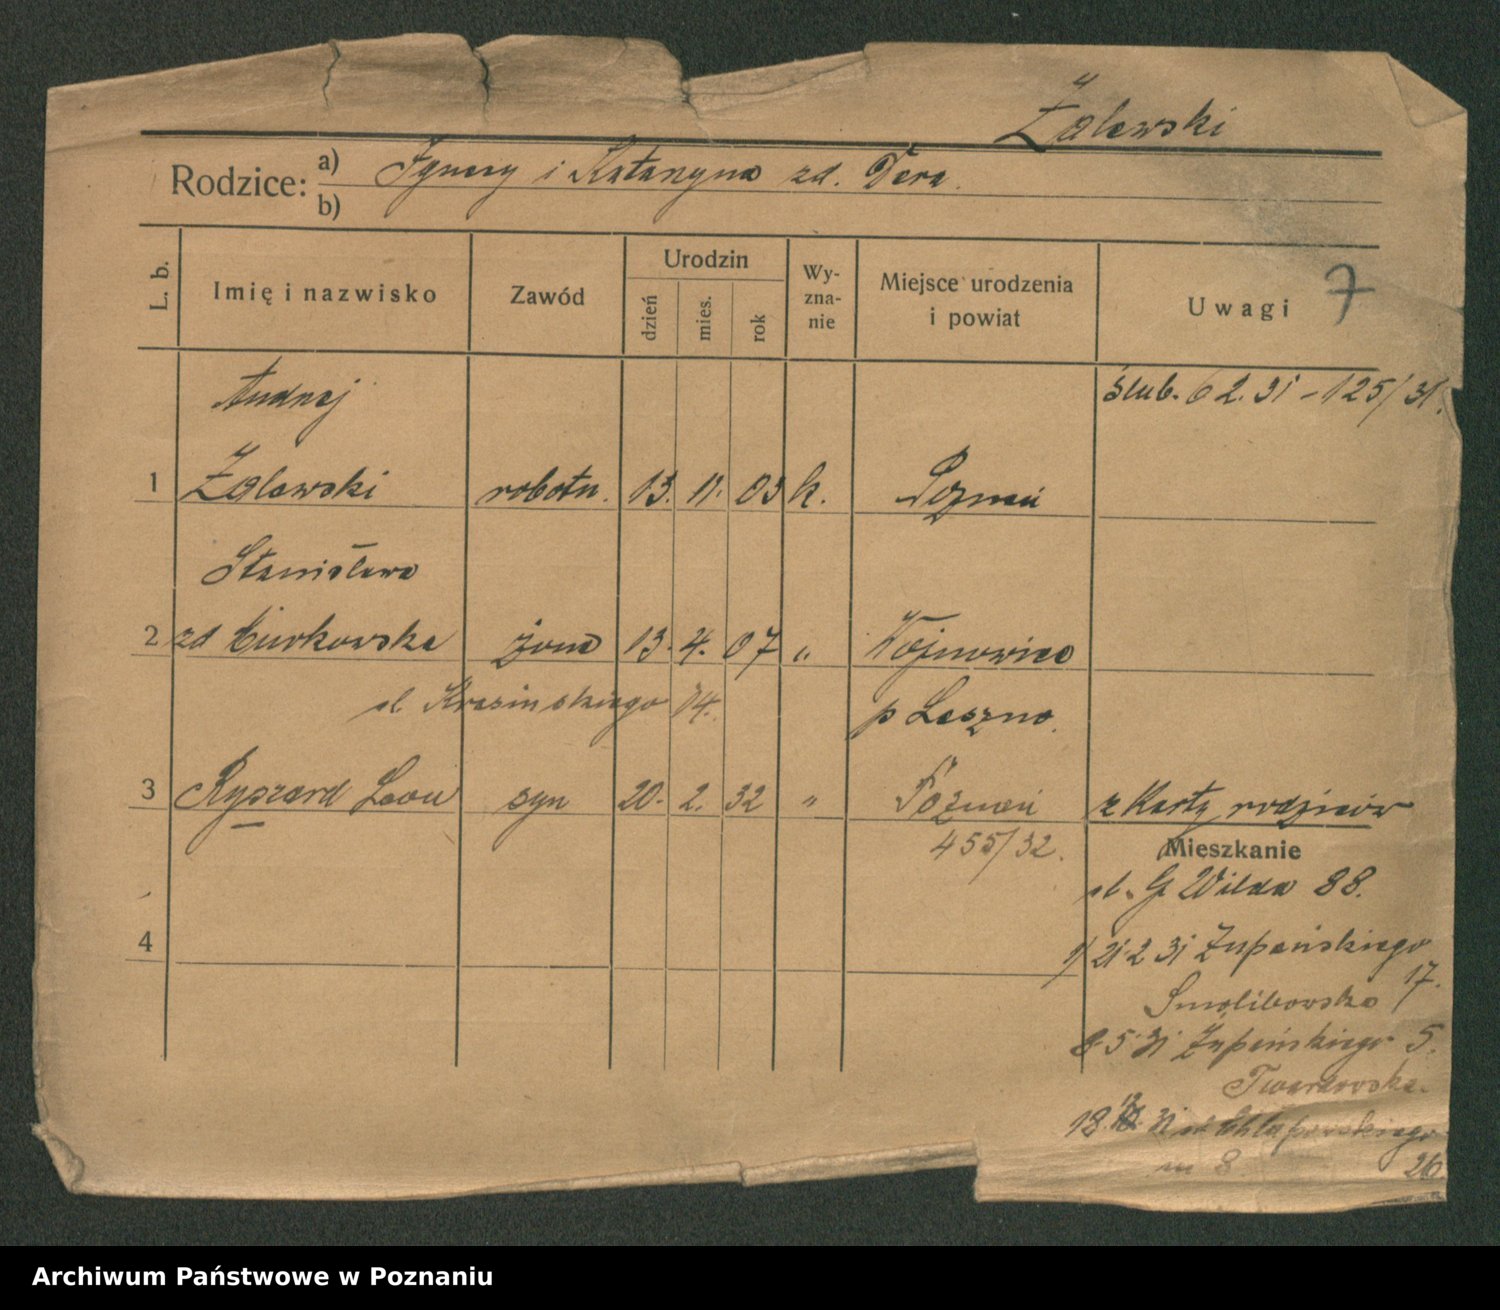 Żalewski
Rodzice: a) Ignacy i Katarzyna zd. Dera.
b)
L. b.
Imię i nazwisko
Zawód
Urodzin
dzień
mies.
rok
Wy-
zna-
nie
Miejsce urodzenia
i powiat
Uwagi
7
Andrzej
ślub. 6 2. 31 – 125/31.
1 Żalewski robotn. 13. 11. 03 k. Poznań
Stanisława
2 zd Ciurkowska żona 13. 4. 07 " Wojnowice
ul. Krasińskiego 14. p Leszno.
3 Ryszard Leon syn 20. 2. 32 " Poznań z Karty rodziców
455/32.
Mieszkanie
ul. G Wilda 88.
4
21 2 31 Żupańskiego
17.
8 5 31 Żupańskiego 5.
Twardowska.
18. 12 31 ul Chłapowskiego
m 8. 26
Archiwum Państwowe w Poznaniu